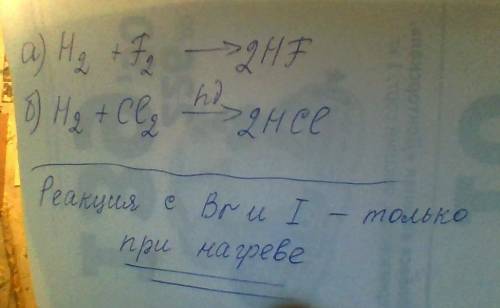 а) H₂ + F₂ → 2HF
б) H₂ + Cl₂ hд→ 2HCl
Реакция с Br и I – только
при нагреве